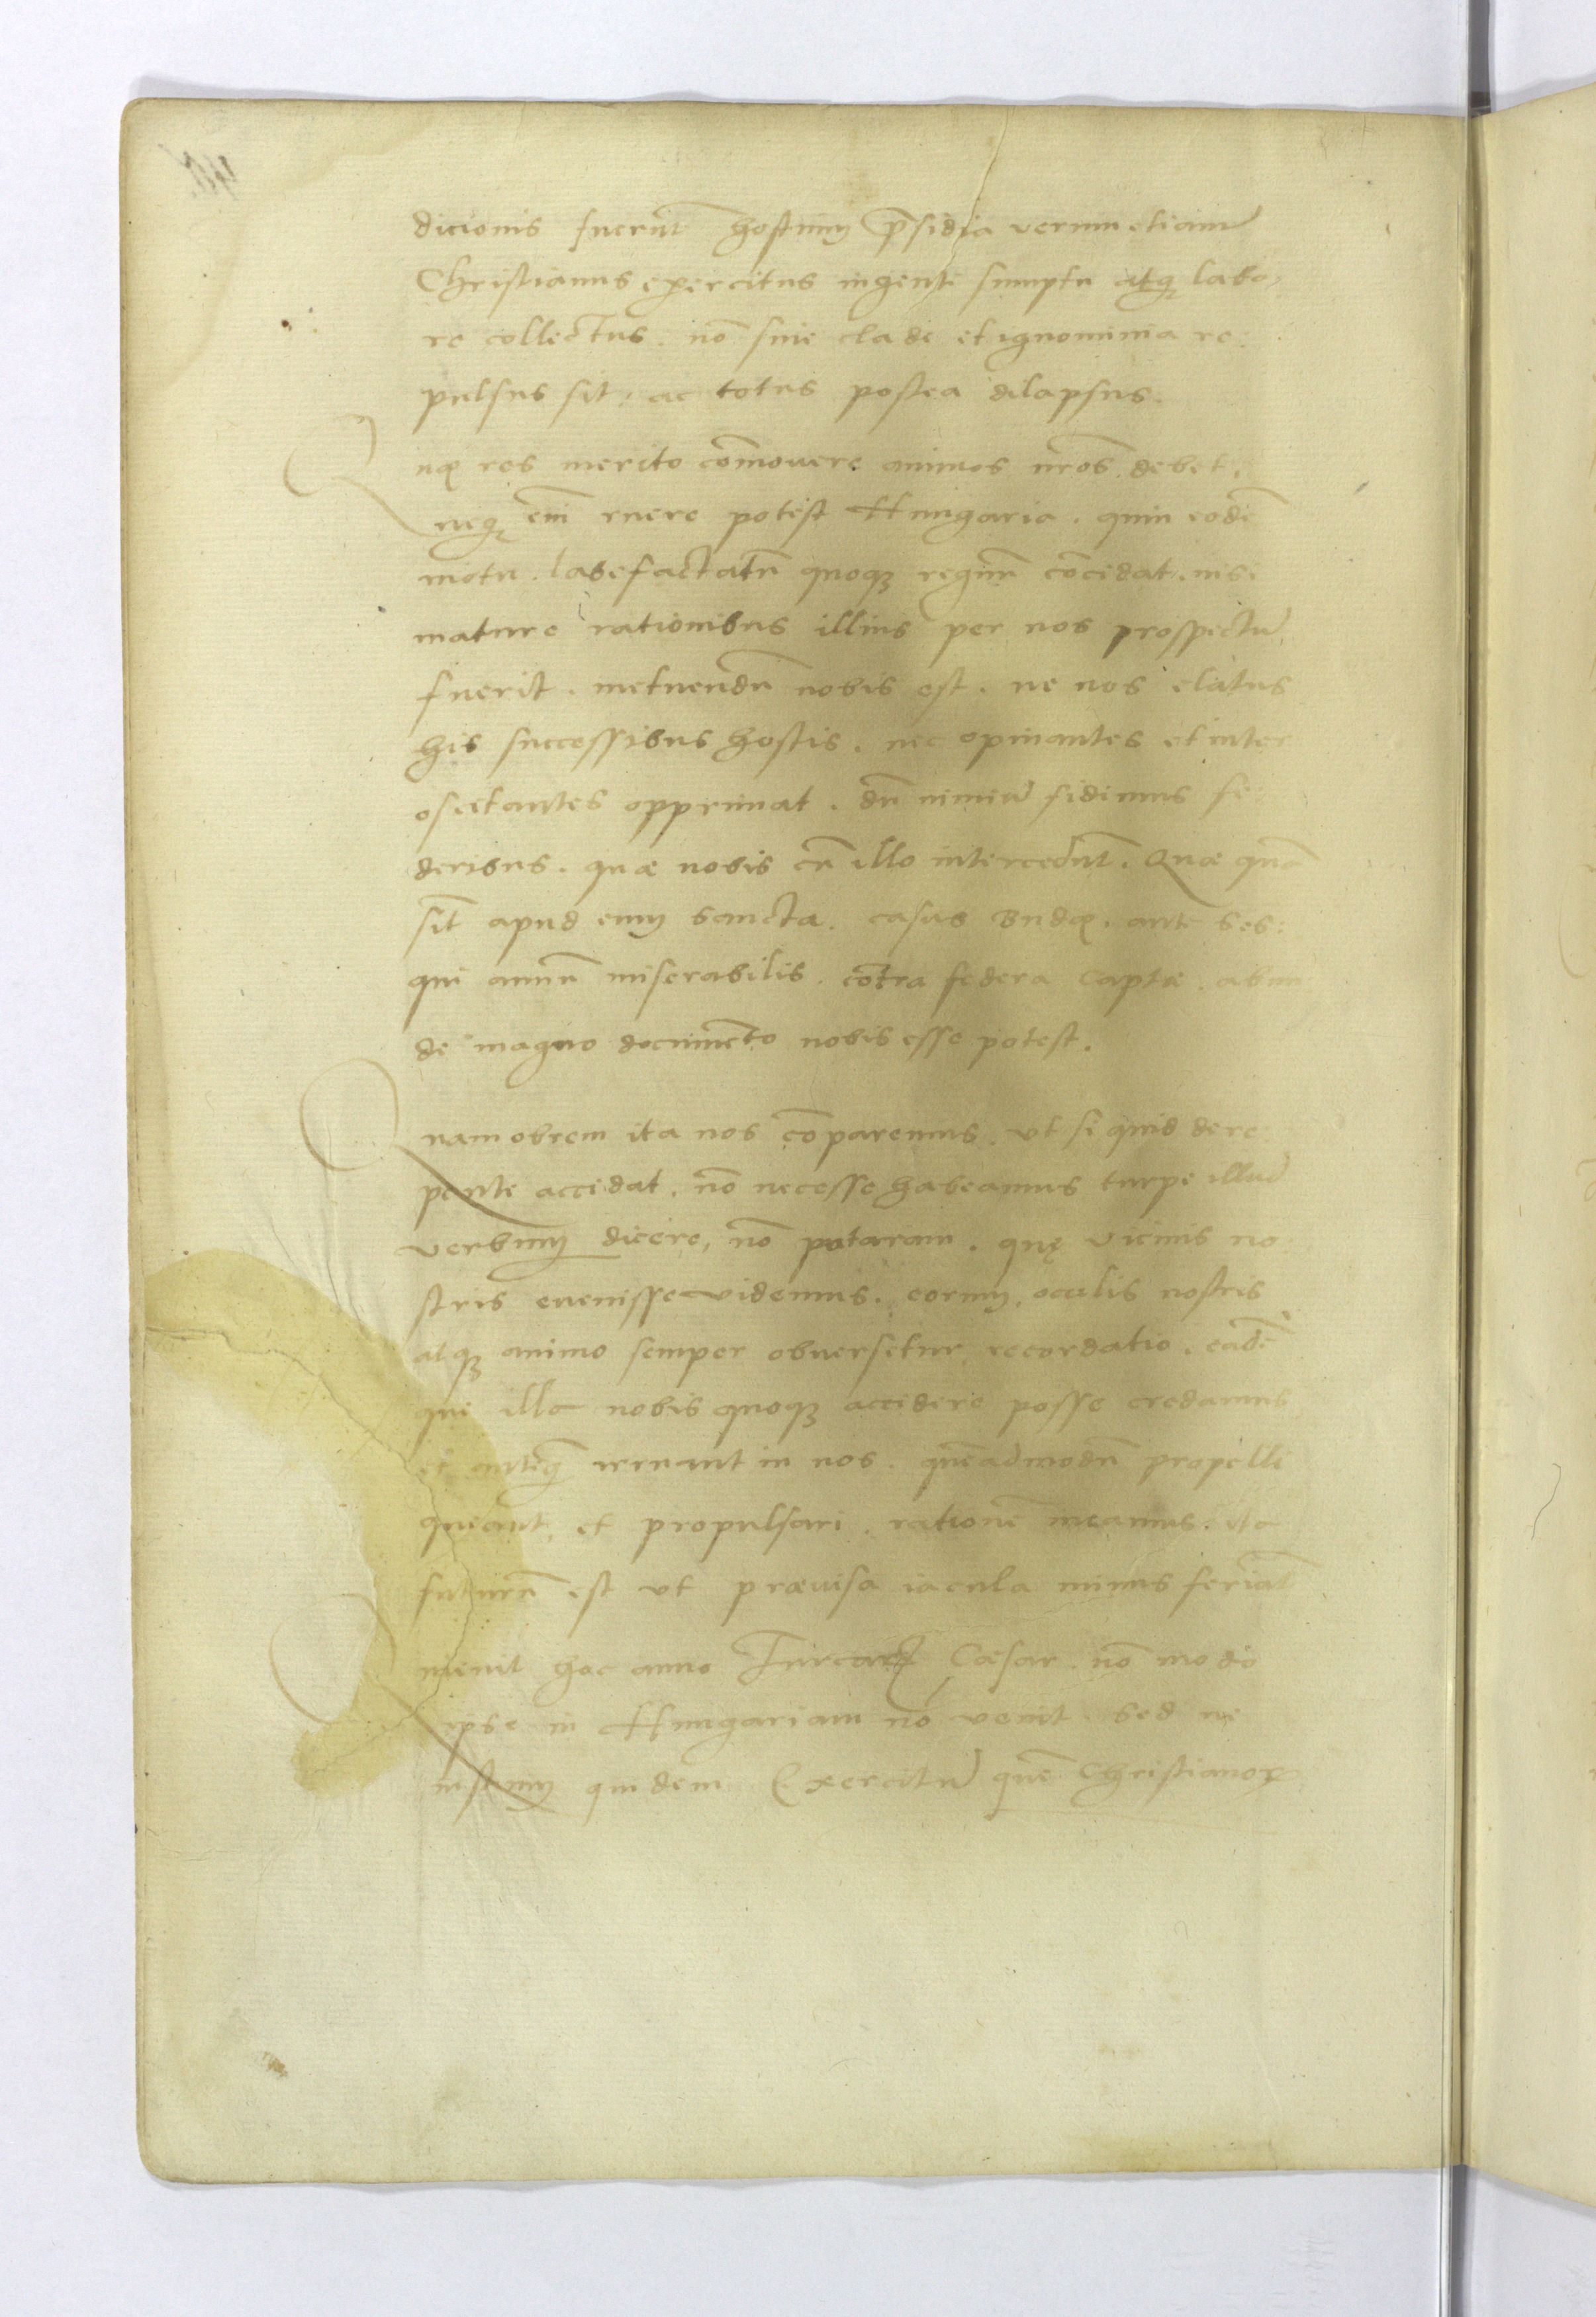 dicionis fuerūt hostium p̄sidia verum etiam
Christianus exercitus ingenti sumptu atq; labo
re collectus. nō sine clade et ignominia re
pulsus sit, ac totus postea dilapsus.
Quę res merito com̄overe animos nr̄os debet,
neq; em̄ ruere potest Hungaria. quin eodē
motu. labefactatū quoq; regnū cōcidat. nisi
mature rationibus illius per nos prospectū
fuerit. metuendū nobis est. ne nos elatus
his successibus hostis. nec opinantes et inter
oscitantes opprimat. dū nimiū fidimus fe
deribus. quæ nobis cū illo intercedūt. Quæ quā
sīt apud eum sancta. casus Budę. ante ses:
qui annū miserabilis. cōtra federa captæ. abun
de magno documēto nobis esse potest.
Quamobrem ita nos cōparemus. vt si quid dere
pente accidat. nō necesse habeamus turpe illud
verbum dicere, nō putaram. quę vicinis no
stris evenisse videmus. eorum, oculis nostris
atq; animo semper obversetur recordatio. eadē
que illa nobis quoq; accidere posse credamus
et anteq̄ irruant in nos. quēadmodū propelli
queant, et propulsari. rationē ineamus. ita
futurū est vt prævisa iacula minus feriāt
Quievit hoc anno Turcarꝫ Cæsar. nō modo
ipse in Hungariam nō venit. sed ne
iustum quidem Exercitū quē Christianorꝫ